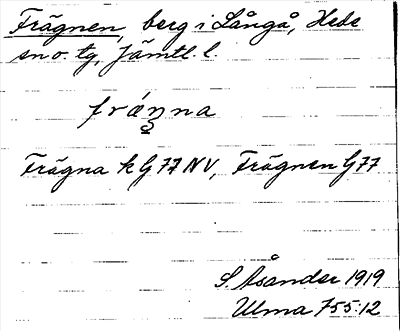 Frägnen, berg i Långå, Hede
sn o. tg, Jämtl. l.
Frägna k G 77 NV, Frägnen G 77
S. Åsander 1919
Ulma 755:12